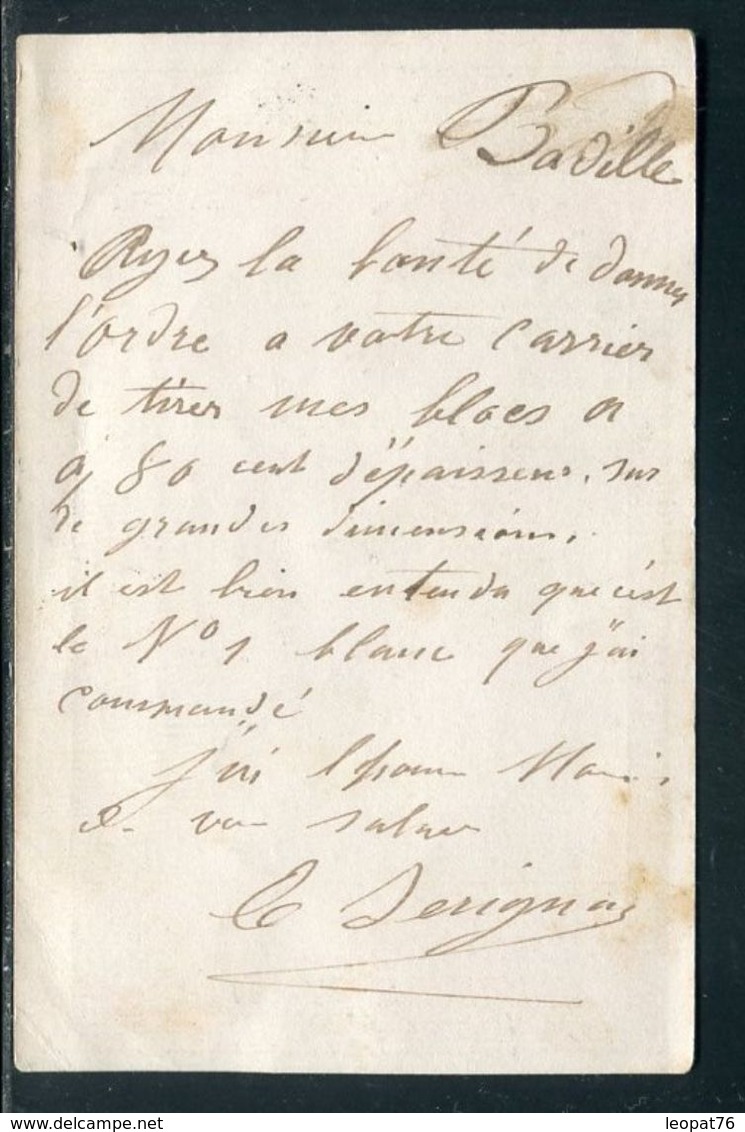 Monsieur Baville
Ayez la bonté de donner
l'ordre a votre carrier
de tirer mes blocs a
a 80 cent d'épaisseur. sur
de grandes dimensions.
il est bien entendu que c'est
le No 1 blanc que j'ai
commandé
j'ai l'honneur
de vous saluer
Serignac
leopat76